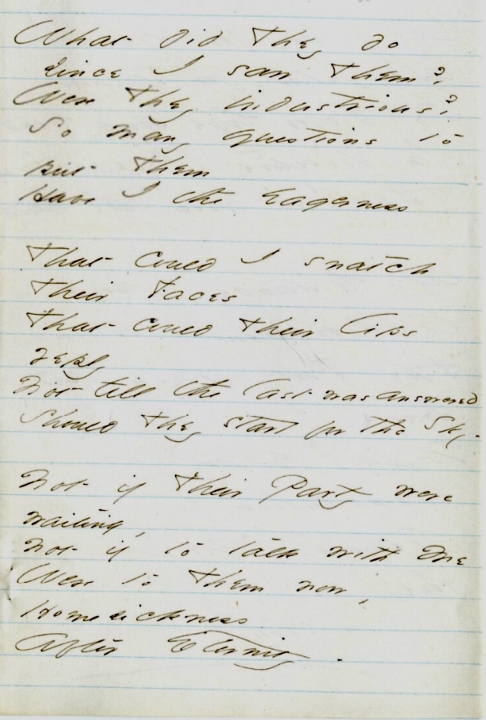 What did they do
since I saw them?
Were they industrious?
So many questions to
put them
Have I the eagerness
That could I snatch
their Faces
That could their lips
reply
Not till the last was answered
Should they start for the Sky.
Not if their Party were
waiting,
Not if to talk with me
Were to them now,
Homesickness
After Eternity.